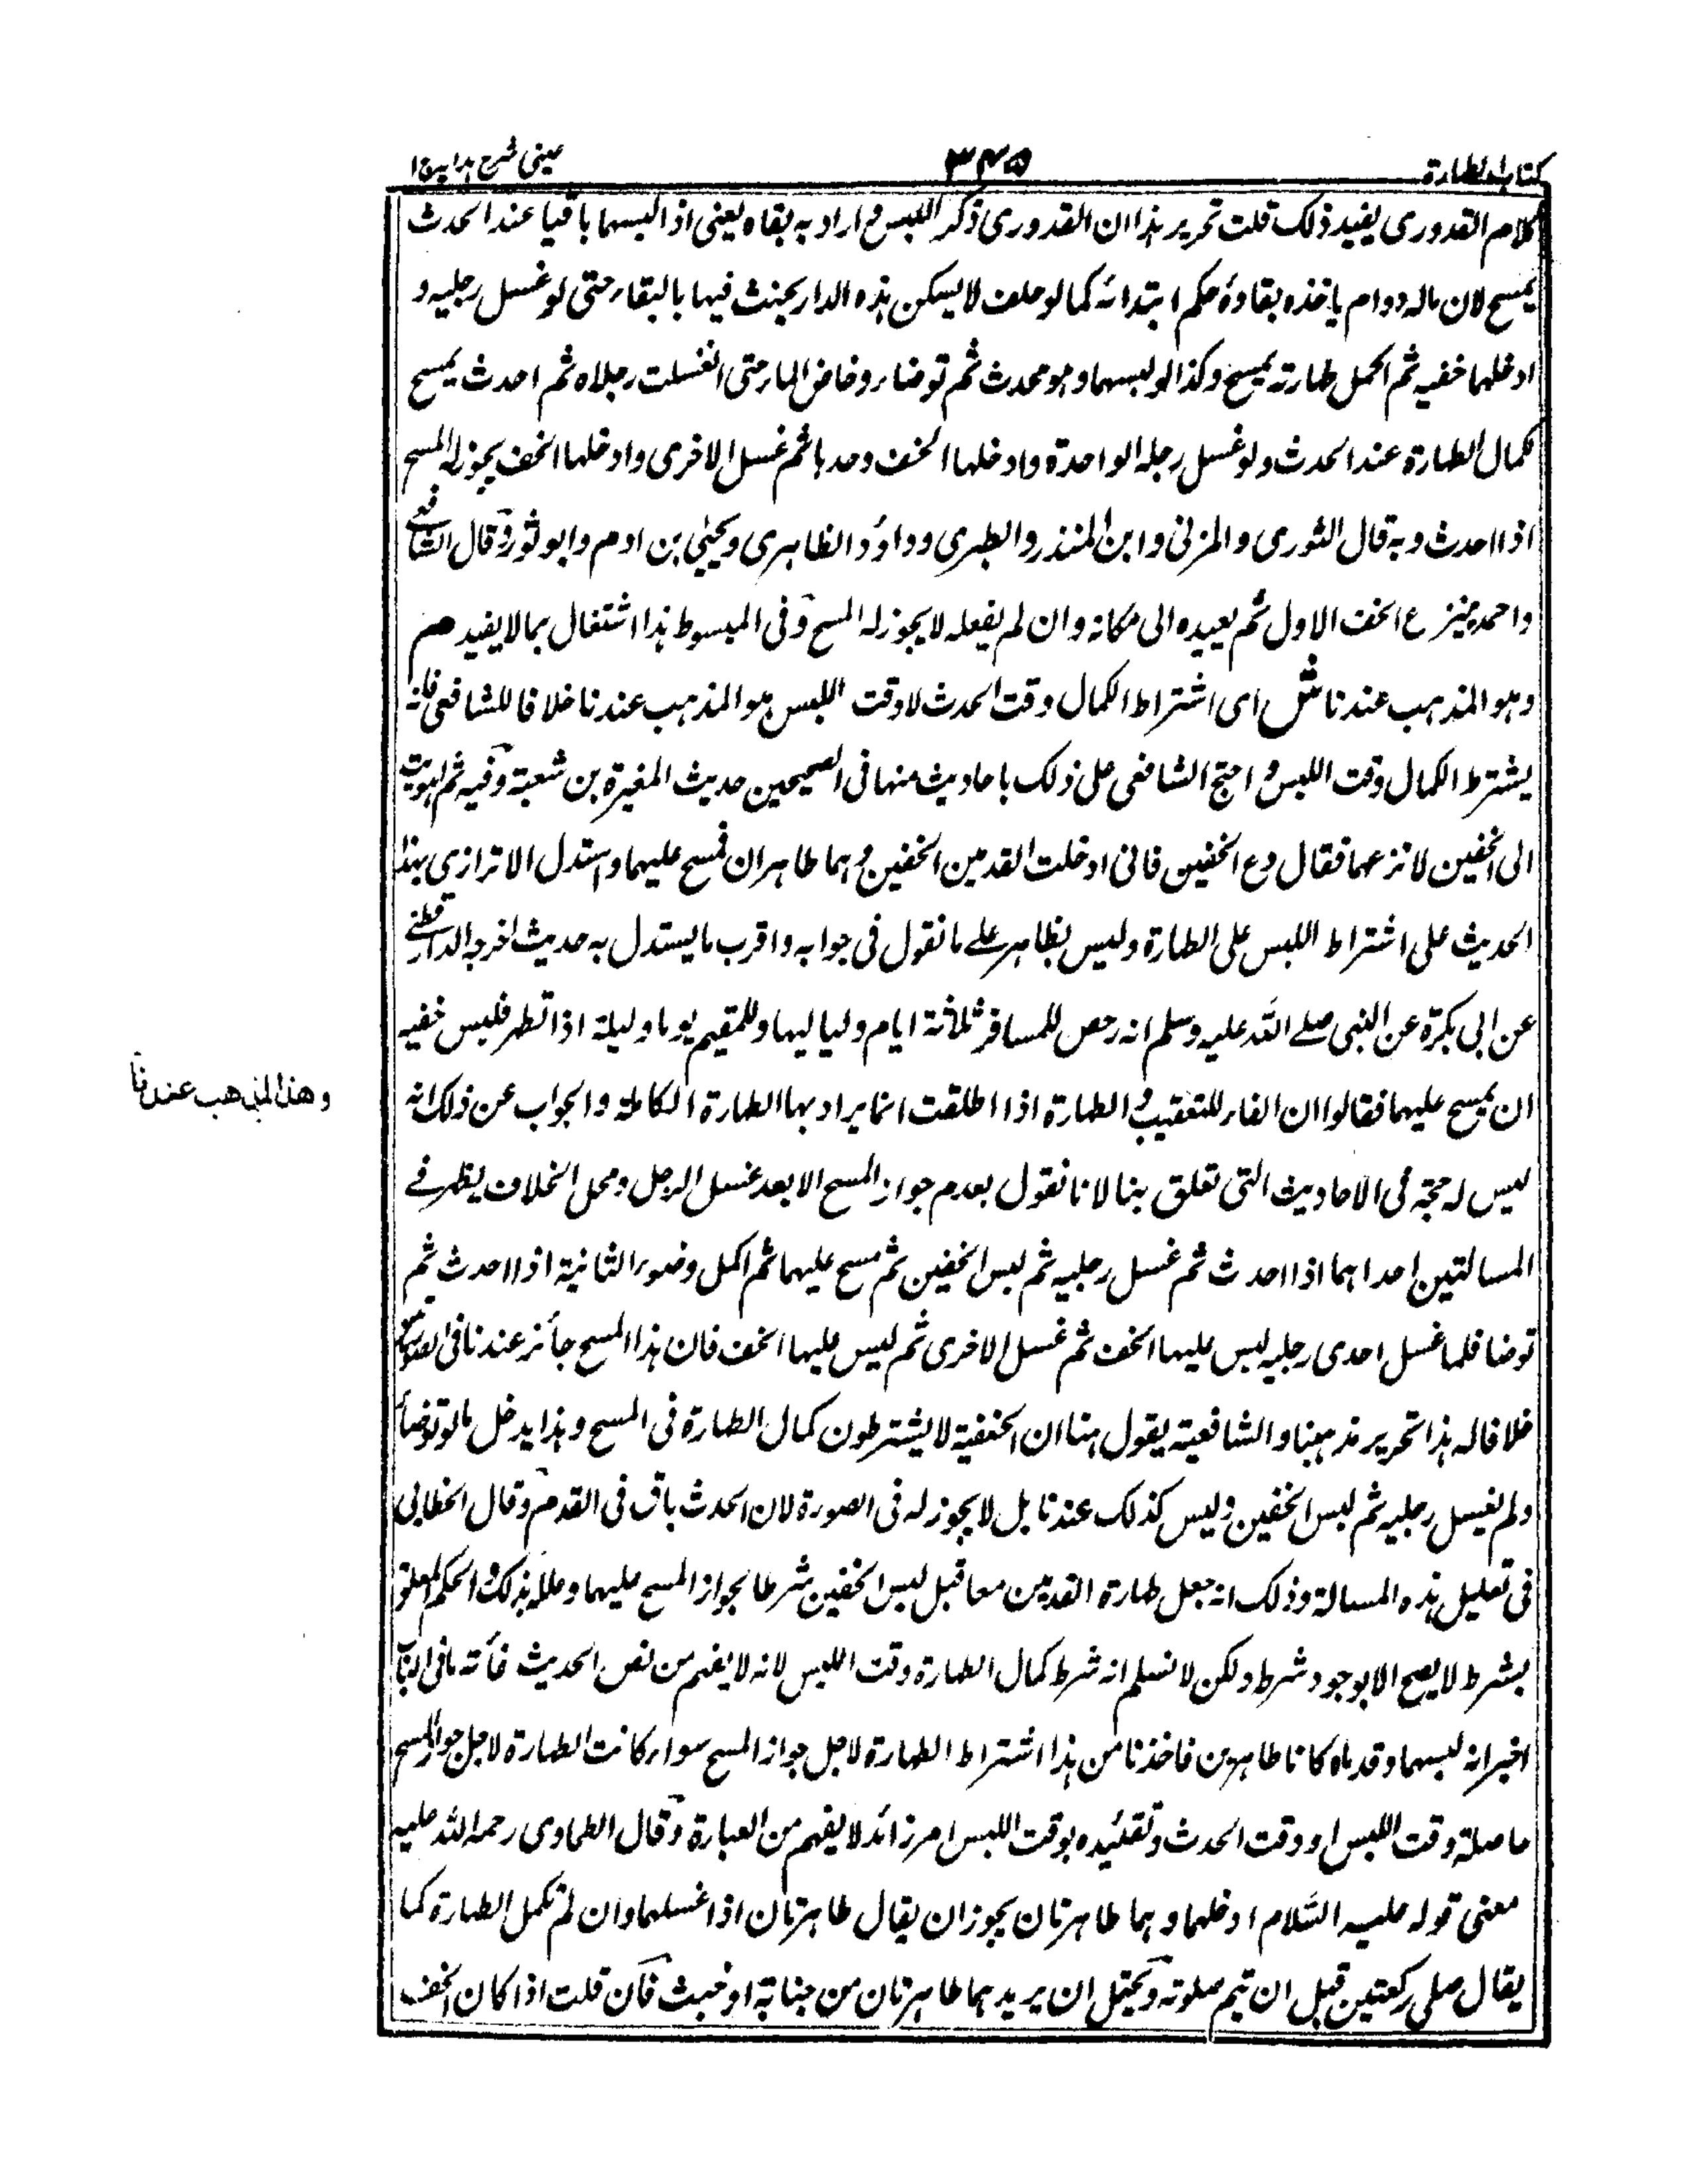 كتاب الطهارة
٣٤٥
عينى شرح هدايہ ج ١
كلام القدورى يفيد ذلك قلت تحرير هذا ان القدورى ذكر اللبس واراد به بقاه يعنى اذا لبسهما باقيا عند الحدث
يمسح لان ماله دوام ياخذه بقاؤه حكم ابتدائه كما لو حلف لا يسكن هذه الدار يحنث فيها بالبقاء حتى لو غسل رجليه و
ادخلهما خفيه ثم اكمل طهارته يمسح وكذا لو لبسهما وهو محدث ثم توضاء وخاض الماء حتى انغسلت رجلاه ثم احدث يمسح
لكمال الطهارة عند الحدث ولو غسل رجله الواحدة وادخلها الخف وحدها ثم غسل الاخرى وادخلها الخف يجوز له المسح
اذا احدث وبه قال الثورى والمزنى وابن المنذر والطبرى وداؤد الظاهرى ويحيٰى بن ادم وابو ثور وقال الشافعے
واحمد ينزع الخف الاول ثم يعيده الى مكانه وان لم يفعله لا يجوز له المسح وفى المبسوط هذا اشتغال بما لا يفيد صم
وهو المذهب عندنا ش اى اشتراط الكمال وقت الحدث لا وقت اللبس هو المذهب عندنا خلافا للشافعى فانه
يشترط الكمال وقت اللبس واحتج الشافعى على ذلك باحاديث منها فى الصحيحين حديث المغيرة بن شعبة وفيه ثم اهويت
الى الخفين لانزعهما فقال دع الخفين فانى ادخلت القدمين الخفين وهما طاهران فمسح عليهما واستدل الاترازى بهذا
الحديث على اشتراط اللبس على الطهارة وليس بظاهر علے ما نقول فى جوابه واقرب ما يستدل به حديث اخرجه الدارقطنے
عن ابى بكرة عن النبى صلے الله عليه وسلم انه رخص للمسافر ثلاثة ايام ولياليها وللمقيم يوما وليلة اذا تطهر فلبس خفيه
ان يمسح عليهما فقالوا ان الفاء للتعقيب والطهارة اذا اطلقت انما يراد بها الطهارة الكاملة والجواب عن ذلك انه
وهذا المذهب عندنا
ليس له حجة فى الاحاديث التى تعلق بنا لانا نقول بعدم جواز المسح الا بعد غسل الرجل ومحل الخلاف يظهر فے
المسالتين احداهما اذا احدث ثم غسل رجليه ثم لبس الخفين ثم مسح عليهما ثم اكمل وضوء الثانية اذا احدث ثم
توضا فلما غسل احدى رجليه لبس عليها الخف ثم غسل الاخرى ثم لبس عليها الخف فان هذا المسح جائز عندنا فى الصورتين
خلافا له هذا تحرير مذهبنا والشافعية يقول هنا ان الحنفية لا يشترطون كمال الطهارة فى المسح وهذا يدخل ما لو توضأ
ولم يغسل رجليه ثم لبس الخفين وليس كذلك عندنا بل لا يجوز له فى الصورة لان الحدث باق فى القدم وقال الخطابى
فى تعليل هذه المسالة وذلك انه جعل طهارة القدمين معا قبل لبس الخفين شرطا لجواز المسح عليهما وعلله بذلك والحكم المعلق
بشرط لا يصح الا بوجود شرط ولكن لا نسلم انه شرط كمال الطهارة وقت اللبس لانه لا يفهم من نص الحديث غاية ما فى الباب
اخبر انه لبسهما وقدماه كانا طاهرين فاخذنا من هذا اشتراط الطهارة لاجل جواز المسح سواء كانت الطهارة لاجل جواز المسح
حاصلة وقت اللبس او وقت الحدث وتقئيده بوقت اللبس امر زائد لا يفهم من العبارة وقال الطحاوى رحمه الله عليه
معنى قوله عليه السلام ادخلهما وهما طاهرتان يجوز ان يقال طاهرتان اذا غسلهما وان لم تكمل الطهارة كما
يقال صلى ركعتين قبل ان تتم صلوته ويحتمل ان يريد هما طاهرتان من جنابة او خبث فان قلت اذا كان الخف